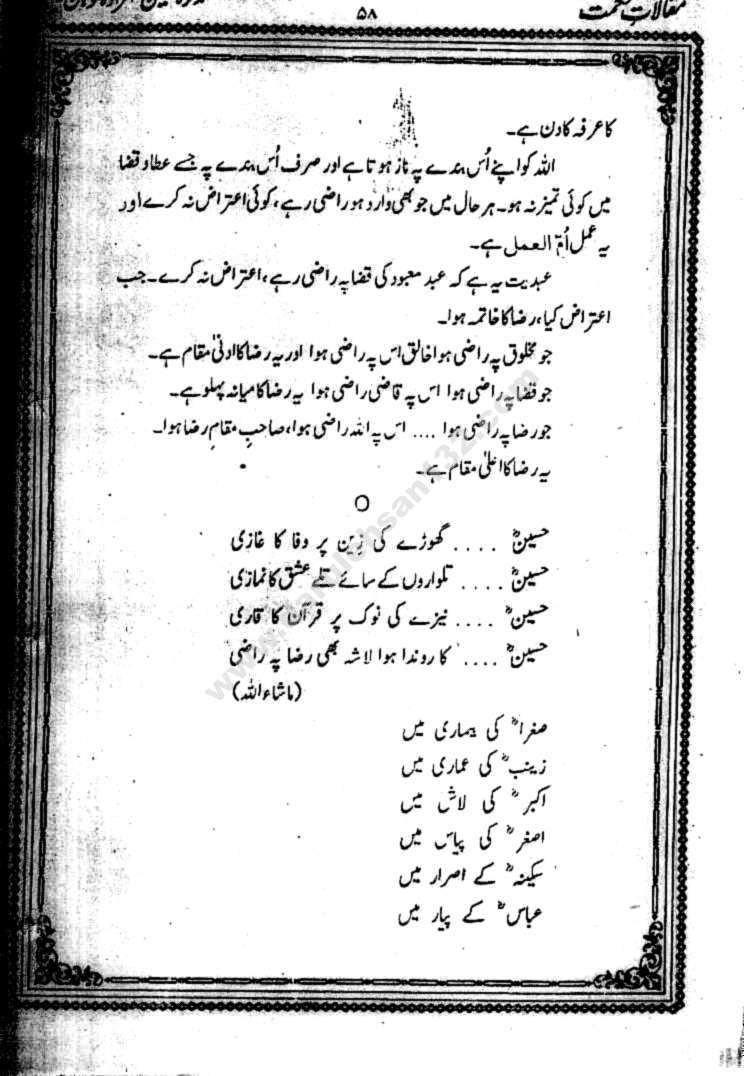 مقالات حکمت
۵۸
کا عرفہ کا دن ہے۔
اللہ کو اپنے اُس بندے پہ ناز ہوتا ہے اور صرف اُس بندے پہ جسے عطا و قضا
میں کوئی تمیز نہ ہو۔ ہر حال میں جو بھی وارد ہو راضی رہے، کوئی اعتراض نہ کرے اور
یہ عمل اُمّ العمل ہے۔
عبدیت یہ ہے کہ عبد معبود کی قضا پہ راضی رہے، اعتراض نہ کرے۔ جب
اعتراض کیا، رضا کا خاتمہ ہوا۔
جو مخلوق پہ راضی ہوا خالق اس پہ راضی ہوا اور یہ رضا کا ادنیٰ مقام ہے۔
جو قضا پہ راضی ہوا اس پہ قاضی راضی ہوا یہ رضا کا میانہ پہلو ہے۔
جو رضا پہ راضی ہوا .... اس پہ اللہ راضی ہوا، صاحبِ مقامِ رضا ہوا۔
یہ رضا کا اعلیٰ مقام ہے۔
حسینؓ .... گھوڑے کی زین پر وفا کا غازی
حسینؓ .... تلواروں کے سائے تلے عشق کا نمازی
حسینؓ .... نیزے کی نوک پر قرآن کا قاری
حسینؓ .... کا روندا ہوا لاشہ بھی رضا پہ راضی
(ماشاء اللہ)
صغراؓ کی بیماری میں
زینبؓ کی عماری میں
اکبرؓ کی لاش میں
اصغرؓ کی پیاس میں
سکینہؓ کے اصرار میں
عباسؓ کے پیار میں